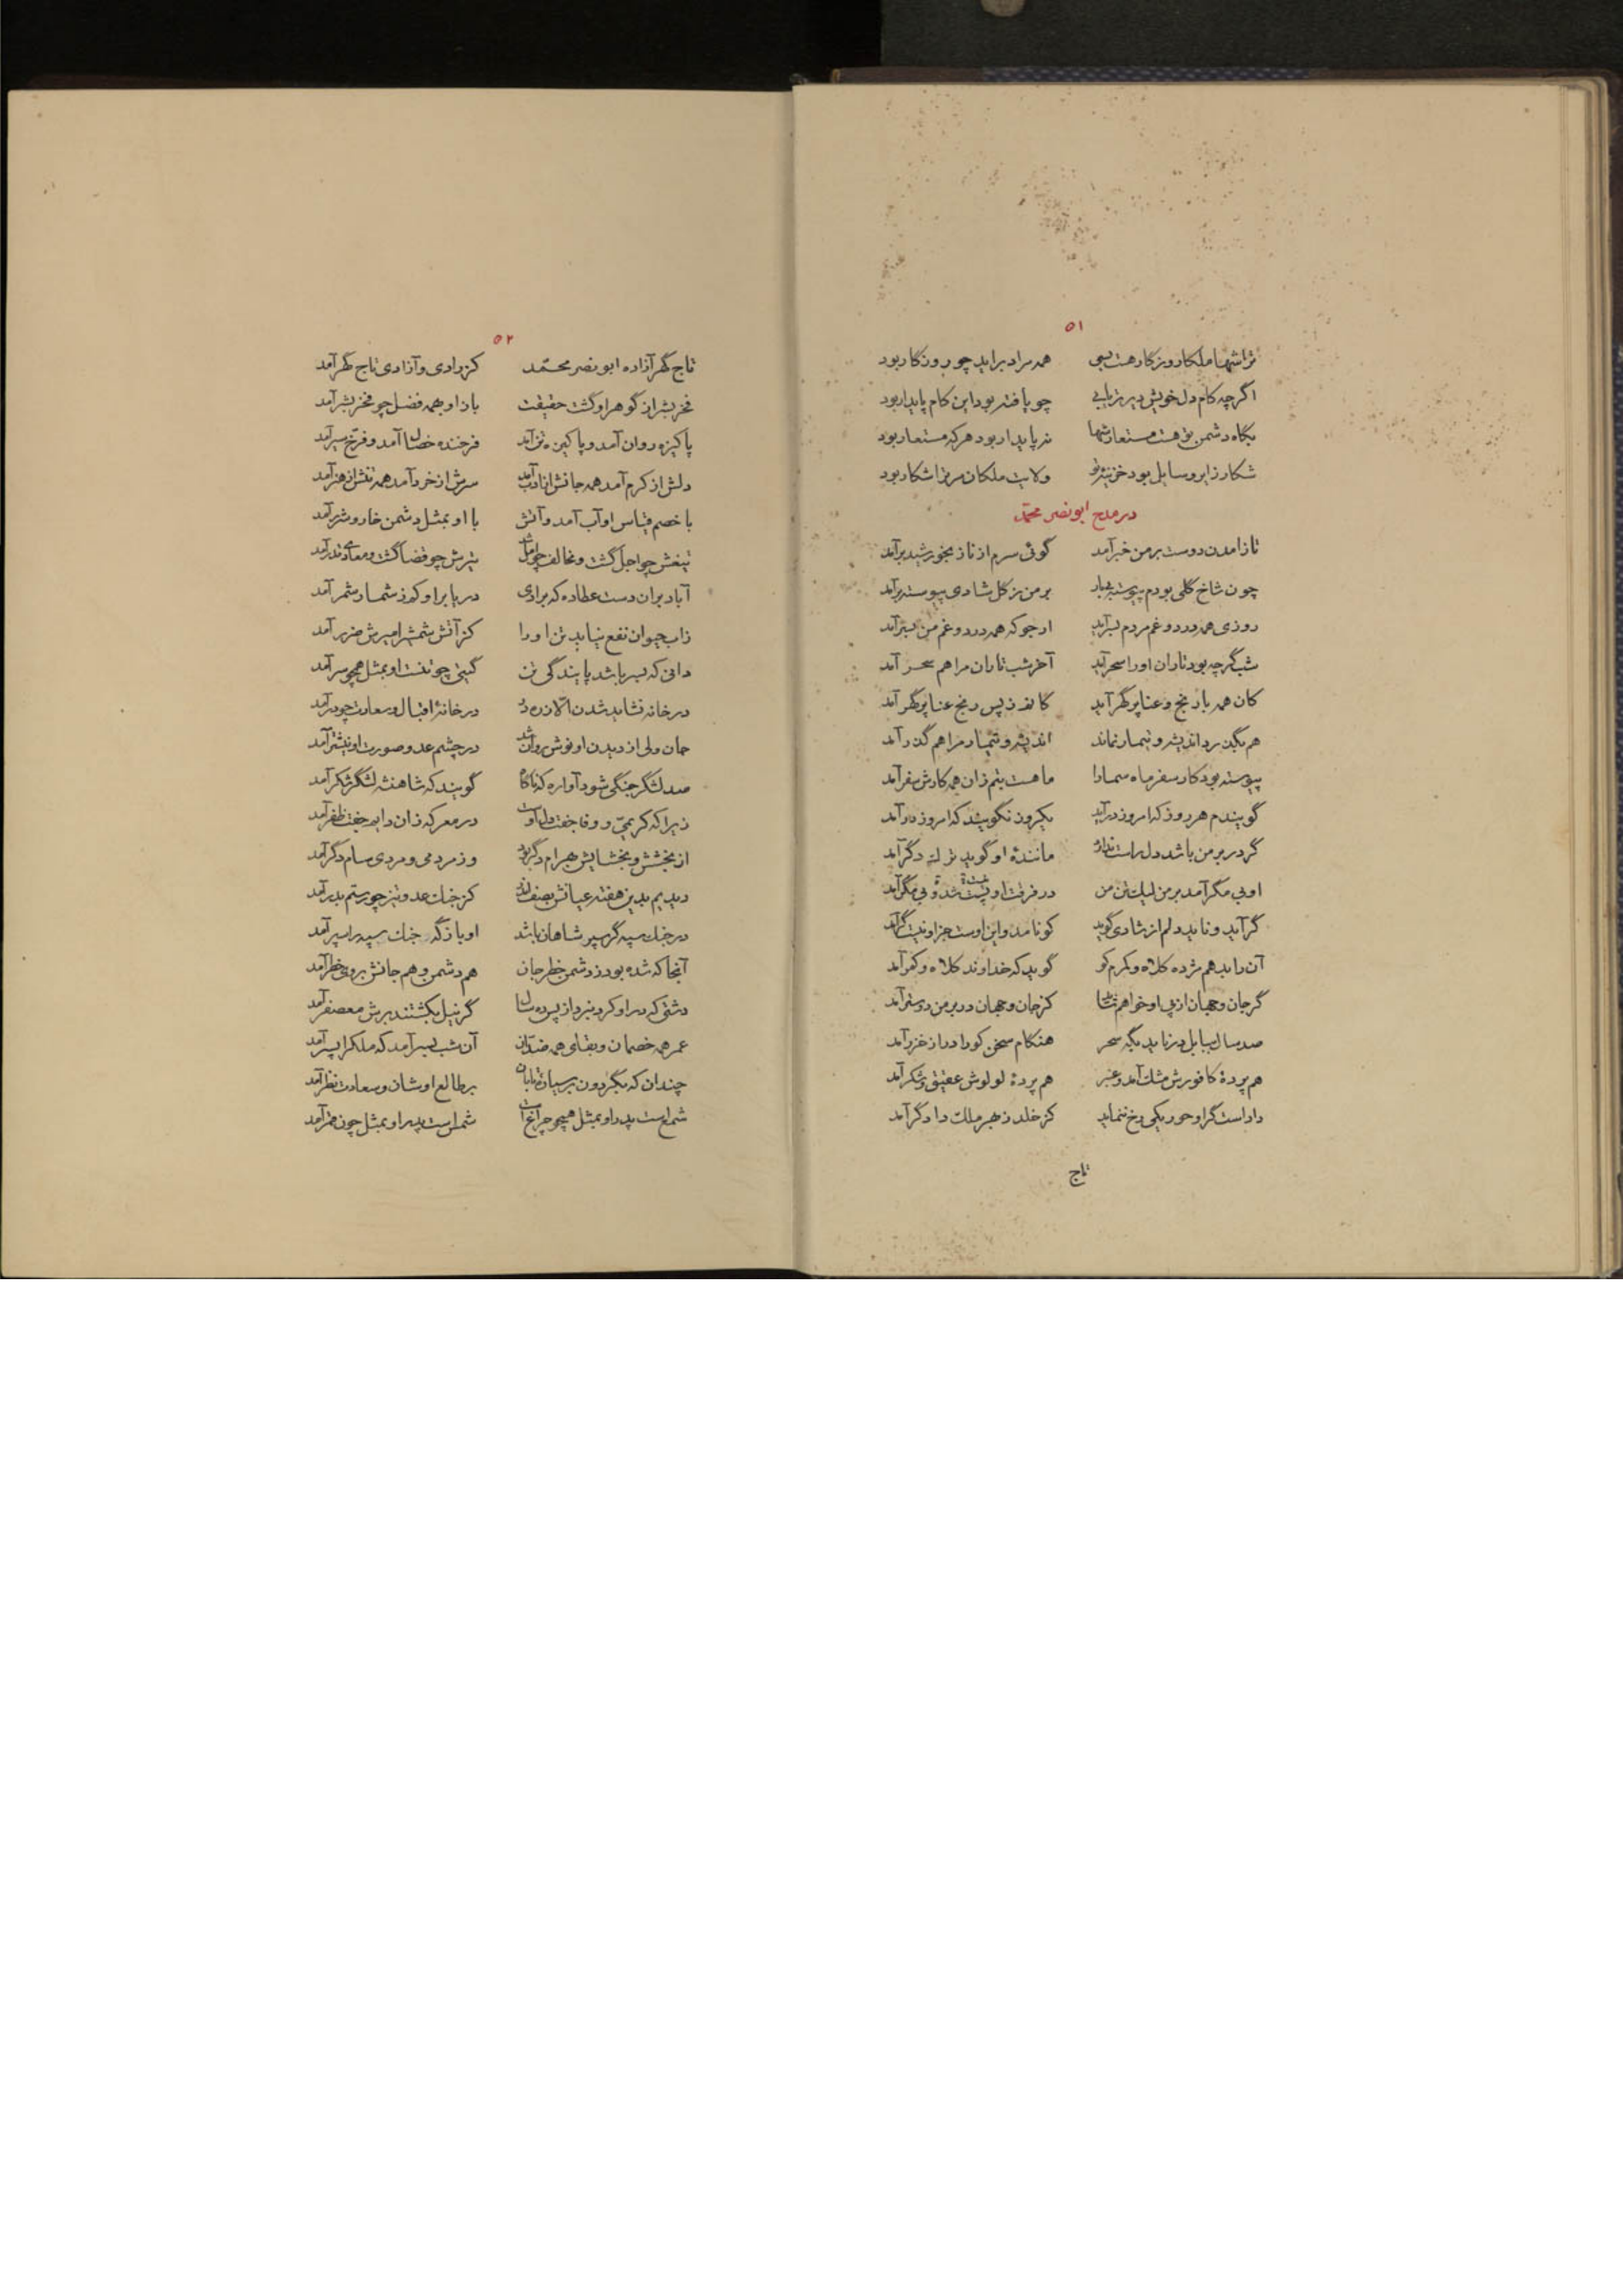 ۵۱
ترا شها ملکا روزگار هست بسی همه مراد برآید چو روزگار بود
اگرچه کام دل خویش دیرتر یابی چو یافته بود این کام پایدار بود
بگاه دشمن تو هست مستعار شها نه پایدار بود هرکه مستعار بود
شکار زایر و سایل بود خزینه تو ولایت ملکان مر ترا شکار بود
در مدح ابونصر محمّد
تا زآمدن دوست بر من خبر آمد گوئی سرم از ناز بخورشید برآمد
چون شاخ گلی بودم پیوسته بر من ز گل شادی پیوسته برآمد
روزی همه درد و غم مردم بسرآید ارجو که همه درد و غم من بسرآمد
شب گرچه بود تاران او را سحر آید آخر شب تاران مرا هم سحر آمد
کان همه با رنج و عنا پر گهر آید کانم ز پس رنج و عنا پر گهر آمد
هم بگذرد اندیشه و تیمار نماند اندیشه و تیمار مرا هم گذر آمد
پیوسته بود کار سفر ماه سما را ماهست بتم زان همه کارش سفر آمد
گویندم هر روز که امروز درآید یکروز نگویند که امروز درآمد
گر در بر من باشد دل راست ندارد مانندهٔ او گوید ترک دگر آمد
او بی مگر آمد بر من لیک تن من در فرقت او نیست شده بی مگر آمد
گر آید و ناید دلم از شادی گوید کو نامد و این اوست جز او نیست گر آمد
آن را بدهم مژده کلاه و کمرم کو گوید که خداوند کلاه و کمر آمد
گر جان و جهان از پی او خواهم شاید کز جان و جهان در بر من دوستر آمد
صد سال ببابل در ناید بگه سحر هنگام سخن کو را در از خزر آمد
هم پردهٔ کافورش مشک آمد و عنبر هم پردهٔ لولوش عقیق و شکر آمد
داراست گر او حور یکی رخ ننماید کز خلد ز بهر ملک دادگر آمد
تاج
۵۲
تاج گهر آزاده ابونصر محمّد کز رادی و آزادی تاج گهر آمد
فخر بشر از گوهر او گشت حقیقت باز او بهمه فضل چو فخر بشر آمد
پاکیزه روان آمد و پاکیزه تن آمد فرخنده خصال آمد و فرّخ سیر آمد
دلش از کرم آمد همه جانش از ادب آمد سرش از خرد آمد همه تنش از هنر آمد
با خصم قیاس او آب آمد و آتش با او بمثل دشمن خار و شرر آمد
تیغش چو اجل گشت و مخالف چو امل شد تیرش چو قضا گشت و معادی قدر آمد
آباد بر آن دست عطاده که برادی دریا بر او کم ز شمار شمر آمد
زآب حیوان نفع نیاید تن او را کز آتش شمشیر امیرش ضرر آمد
دانی که بسر باشد پایندگی تن گیتی چو تنست او بمثل همچو سر آمد
در خانه نشاید شدن الّا ز ره در در خانهٔ اقبال و سعادت چو در آمد
جان ولی از دیدن او نوش روان شد در چشم عدو صورت او نیشتر آمد
صد لشگر جنگی شود آواره که ناگاه گویند که شاهنشه لشگر شکر آمد
زیرا که کریمیّ و وفا جفت دل اوست در معرکه زان رایه جفت ظفر آمد
از بخشش و بخشایش بهرام دگر بود وز مردمی و مردی سام دگر آمد
دیدیم بدین هفته عیانش بصف اندر کز جنگ عدو نیز چو رستم بدر آمد
در جنگ سپه گر سپر شاهان باشد او بازگه جنگ سپه را سپر آمد
آنجا که شده بود ز دشمن خطر جان هم دشمن و هم جانش بروی خطر آمد
دشتی که در او کرد نبرد از پس ده سال گر نیل بکشتند برش معصفر آمد
عمر همه خصمان و بقای همه ضدّان آن شب بسر آمد که ملک را پسر آمد
چندان که بگردون بر سیارهٔ تابان بر طالع او شان و سعادت نظر آمد
شمع است پدر او بمثل همچو چراغ است شمس است پدر او بمثل چون قمر آمد